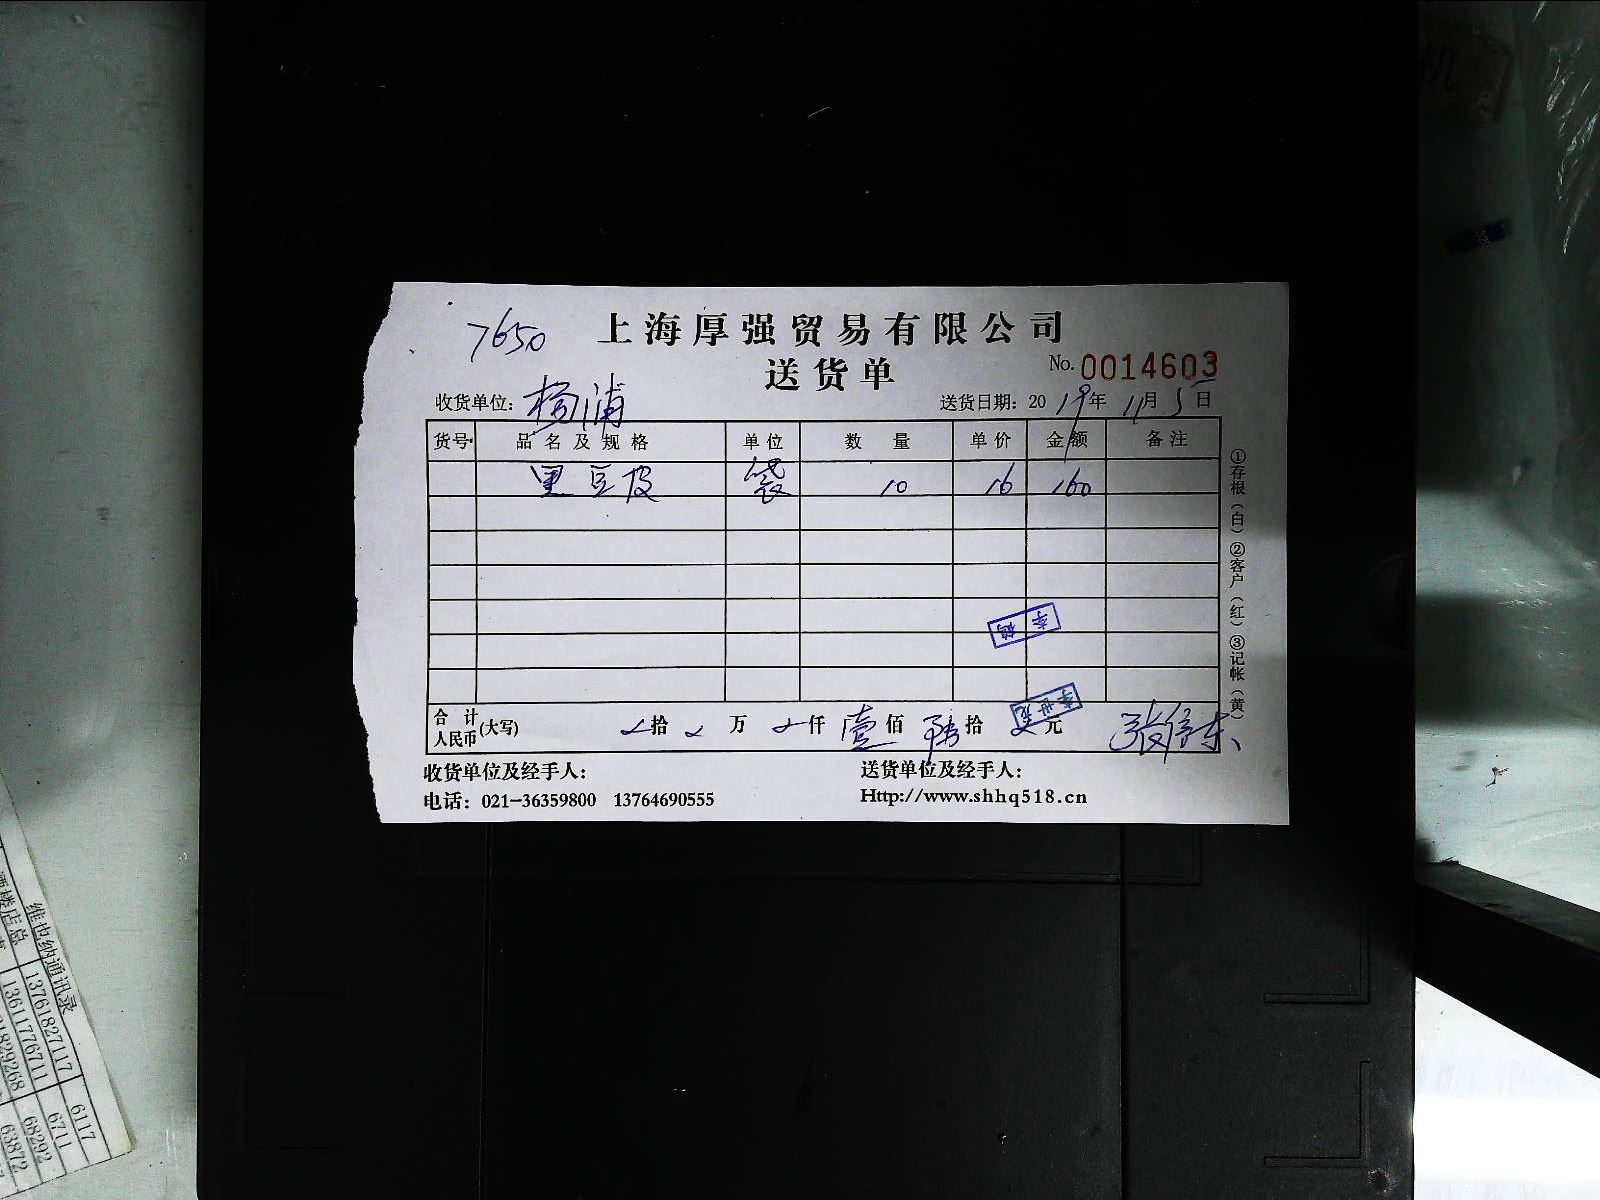 7650
上海厚强贸易有限公司
送货单
No. 0014603
收货单位: 杨浦
送货日期: 2019年11月5日
货号 品名及规格 单位 数量 单价 金额 备注
黑豆皮 袋 10 16 160
①存根(白)②客户(红)③记帐(黄)
合计人民币(大写) 拾 万 仟 壹佰 陆拾 元
收货单位及经手人:
送货单位及经手人:
电话: 021-36359800 13764690555
Http://www.shhq518.cn
维也纳通讯录
13761827117 6117
酒楼店总 13611776711 6711
68292
63872
机